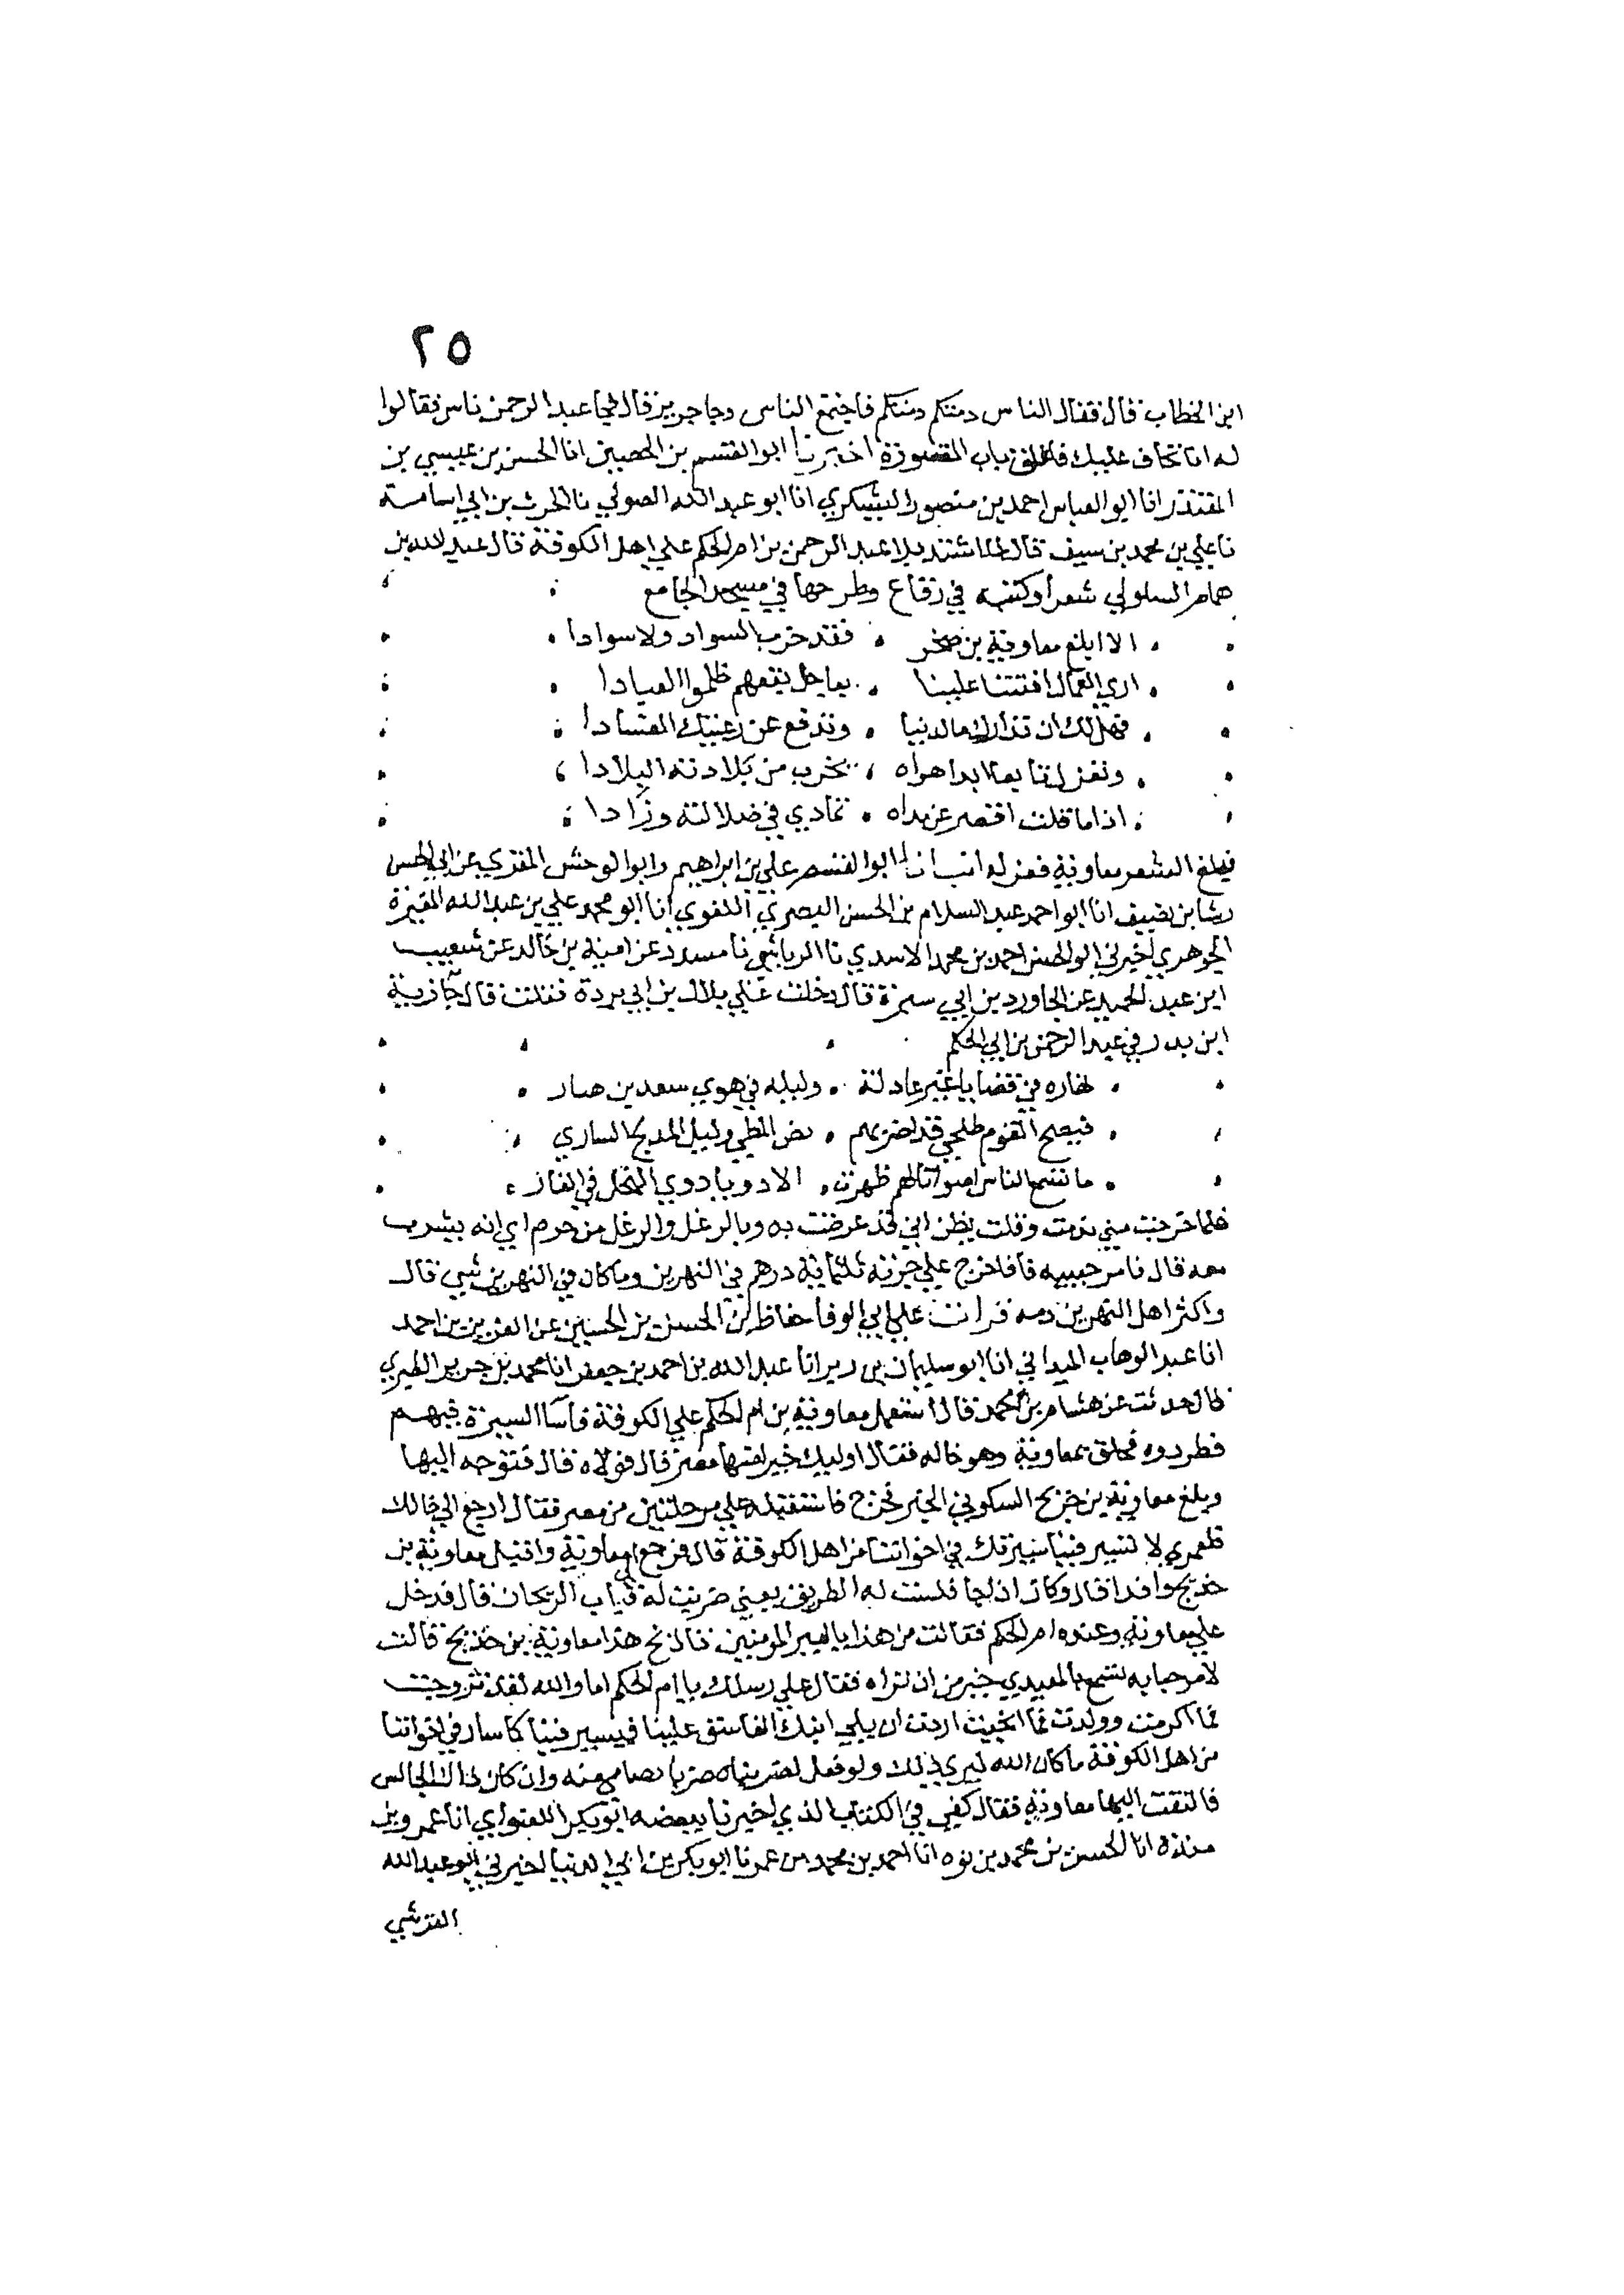 ٢٥
ابن الخطاب قال فقال الناس دمتكم دمتكم فاجتمع الناس وجا جرير قال فجا عبد الرحمن ناس فقالوا
له انا نخاف عليك فاغلق باب المقصورة اخبرنا ابو القسم بن الحصين انا الحسن بن عيسي بن
المقتدر انا ابو العباس احمد بن منصور اليشكري انا ابو عبد الله الصولي نا الحرث بن ابي اسامة
نا علي بن محمد بن سيف قال لما اشتد بلا عبد الرحمن بن ام الحكم علي اهل الكوفة قال عبد الله بن
همام السلولي شعرا وكتبه في رقاع وطرحها في مسجد الجامع
الا ابلغ معاوية بن صخر فقد خرب السواد ولا سوادا
اري العمال افتتنا علينا بعاجل نفعهم ظلموا العبادا
فهل لك ان تدارك ما لدينا وتدفع عن رعيتك الفسادا
وتعزل تابعا ابدا هواه يخرب من بلادته البلادا
اذا ما قلت اقصر عن مداه تمادي في ضلالته وزادا
فبلغ الشعر معاوية فعزله انبانا ابو القسم علي بن ابراهيم وابو الوحش المقري عن ابي الحسن
رشا بن نضيف انا ابو احمد عبد السلام بن الحسن البصري اللغوي انا ابو محمد علي بن عبد الله المغيرة
الجوهري اخبرني ابو الحسن احمد بن محمد الاسدي نا الرياشي نا مسدد عن امية بن خالد عن شعيب
ابن عبد الحميد عن الجاورد بن ابي سبرة قال دخلت علي بلال بن ابي بردة فقلت قال حارثة
ابن بدر في عبد الرحمن بن ابي الحكم
نهاره في قضايا غير عادلة وليله في هوي سعد بن هبار
فيصبح القوم طلحي قد اضر بهم نص المطي وليل المدلج الساري
ما تسمع الناس اصواتا لهم ظهرت الا دويا دوي النحل في الغار
فلما خرجت مني ندمت وقلت يظن اني قد عرضت به وبالرغل والرغل من حرم اي انه يشرب
معه قال نا من حبيبه فاخرج علي جزته ثلثماية درهم في النهرين وما كان في النهرين شي قال
واكثر اهل النهرين دمه قرات علي ابي الوفا حفاظ بن الحسن بن الحسين عن العزيز بن احمد
انا عبد الوهاب الميداني انا ابو سليمان بن زبر انا عبد الله بن احمد بن جعفر انا محمد بن جرير الطبري
قال حدثت عن هشام بن محمد قال استعمل معاوية بن ام الحكم علي الكوفة فاسا السيرة فيهم
فطردوه فلحق بمعاوية وهو خاله فقال اوليك خير لتها مصر قال فولاه قال فتوجه اليها
وبلغ معاوية بن خديج السكوني الخبر فخرج فاستقبله علي مرحلتين من مصر فقال ارجع الي خالك
فلعمري لا تسير فينا سيرتك في اخواننا من اهل الكوفة قال فرجع الي معاوية واقبل معاوية بن
خديج وافدا قال وكان اذا جا فلست له الطريق يعني ضربت له قباب الريحان قال فدخل
علي معاوية وعنده ام الحكم فقالت من هذا يا امير المومنين قال بخ هذا معاوية بن خديج قالت
لا مرحبا به تسمع بالمعيدي خير من ان تراه فقال علي رسلك يا ام الحكم اما والله لقد تزوجت
فما اكرمت وولدت فما انجبت اردت ان يلي ابنك الفاسق علينا فيسير فينا كما سار في اخواننا
من اهل الكوفة ما كان الله ليري ذلك ولو فعل لضربناه ضربا يصامي منه وان كان ذلك الجالس
فالتفت اليها معاوية فقال كفي في الكتاب الذي اخبرنا ببعضه ابو بكر اللفتواي انا عمرو بن
مندة انا الحسن بن محمد بن يوه انا احمد بن محمد بن عمر نا ابو بكر بن ابي الدنيا اخبرني ابو عبد الله
القرشي